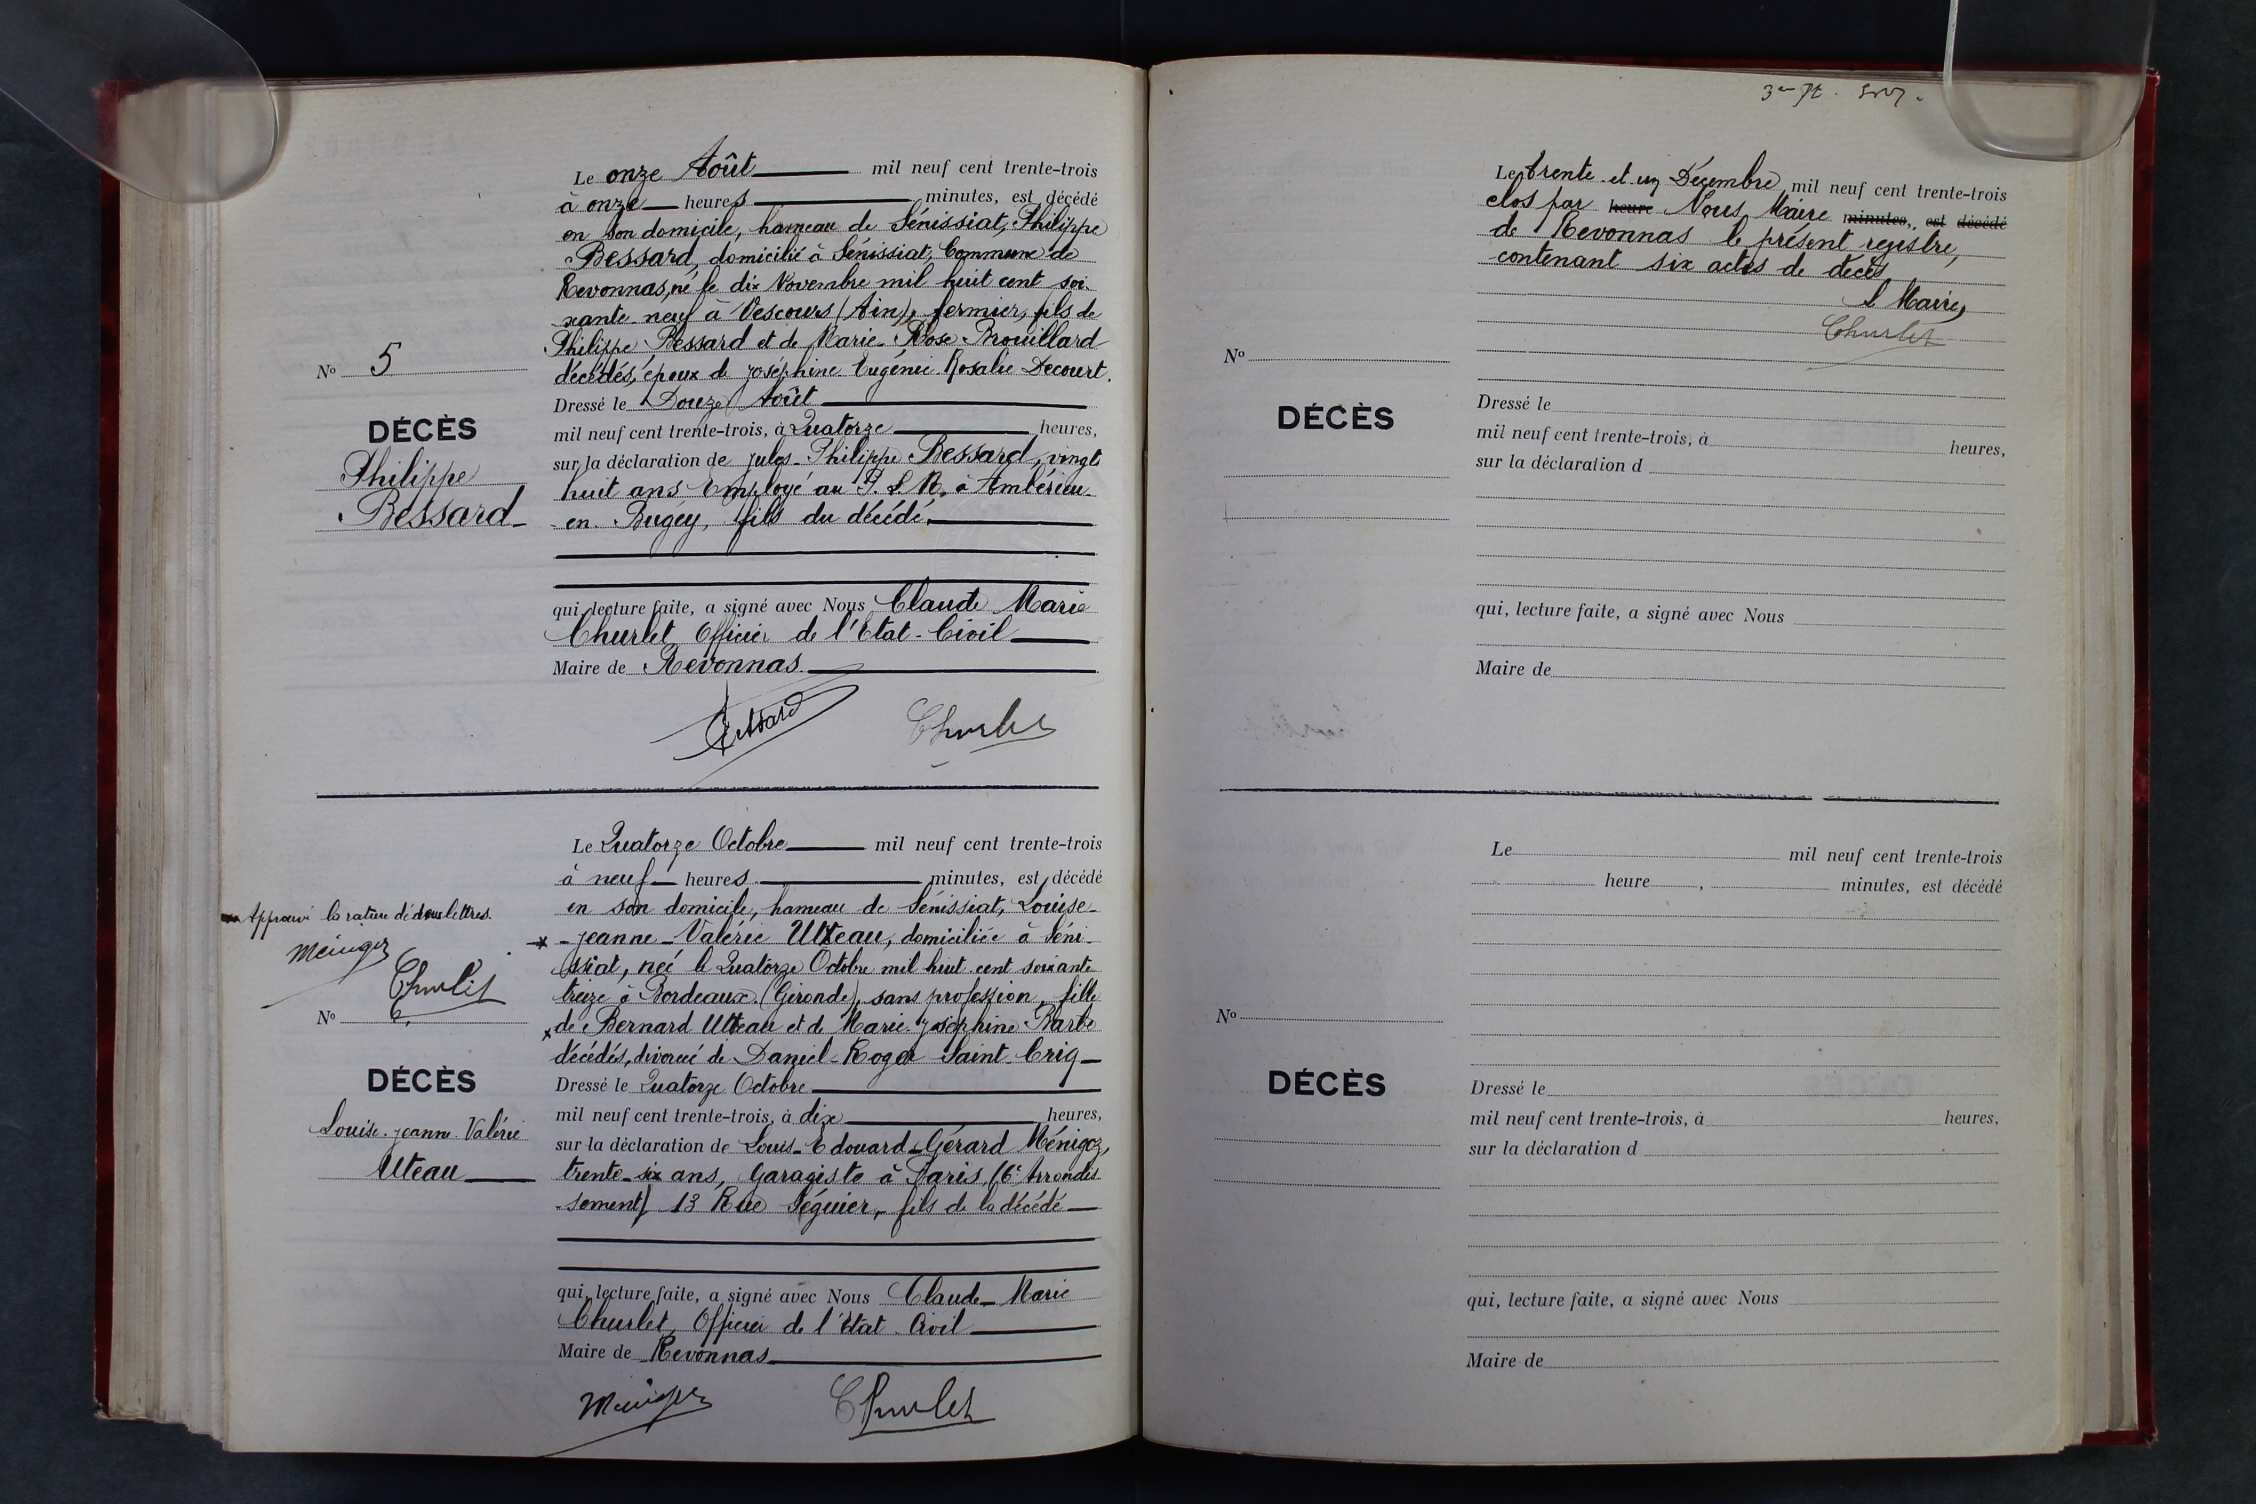 Le onze Août mil neuf cent trente-trois
à onze heures minutes, est décédé
en son domicile, hameau de Sénissiat, Philippe
Bessard, domicilié à Sénissiat, Commune de
Revonnas, né le dix Novembre mil huit cent soi-
xante neuf à Vescours (Ain), fermier, fils de
Philippe Bessard et de Marie-Rose Brouillard
décédés, époux de Joséphine Eugénie Rosalie Decourt.
Dressé le Douze Août
mil neuf cent trente-trois, à Quatorze heures,
sur la déclaration de Jules-Philippe Bessard, vingt
huit ans Employé au P. L. M. à Ambérieu-
en Bugey, fils du décédé.
qui, lecture faite, a signé avec Nous Claude Marie
Churlet Officier de l'Etat-Civil
Maire de Revonnas.
Bessard Churlet
No 5
DÉCÈS
Philippe
Bessard
Le Quatorze Octobre mil neuf cent trente-trois
à neuf heures minutes, est décédé
en son domicile, hameau de Sénissiat, Louise-
-Jeanne-Valérie Utteau, domiciliée à Séni-
ssiat, née le Quatorze Octobre mil huit cent soixante
treize à Bordeaux (Gironde), sans profession, fille
de Bernard Utteau et de Marie-Joséphine Barbe
décédés, divorcée de Daniel-Roger Saint-Criq
Dressé le Quatorze Octobre
mil neuf cent trente-trois, à dix heures,
sur la déclaration de Louis-Edouard-Gérard Ménigoz,
trente-six ans, Garagiste à Paris (6e Arrondis
-sement) 13 Rue Séguier, fils de la décédé
qui, lecture faite, a signé avec Nous Claude-Marie
Churlet, Officier de l'Etat-Civil
Maire de Revonnas
Ménigoz Churlet
Approuvé la rature de deux lettres.
Ménigoz
Churlet
No 6.
DÉCÈS
Louise-Jeanne-Valérie
Uteau
Le trente et un Décembre mil neuf cent trente-trois
clos par heure Nous Maire minutes, est décédé
de Revonnas le présent registre,
contenant six actes de décès
le Maire,
Churlet
No
DÉCÈS
Dressé le
mil neuf cent trente-trois, à heures,
sur la déclaration d
qui, lecture faite, a signé avec Nous
Maire de
Le mil neuf cent trente-trois
heure , minutes, est décédé
No
DÉCÈS
Dressé le
mil neuf cent trente-trois, à heures,
sur la déclaration d
qui, lecture faite, a signé avec Nous
Maire de